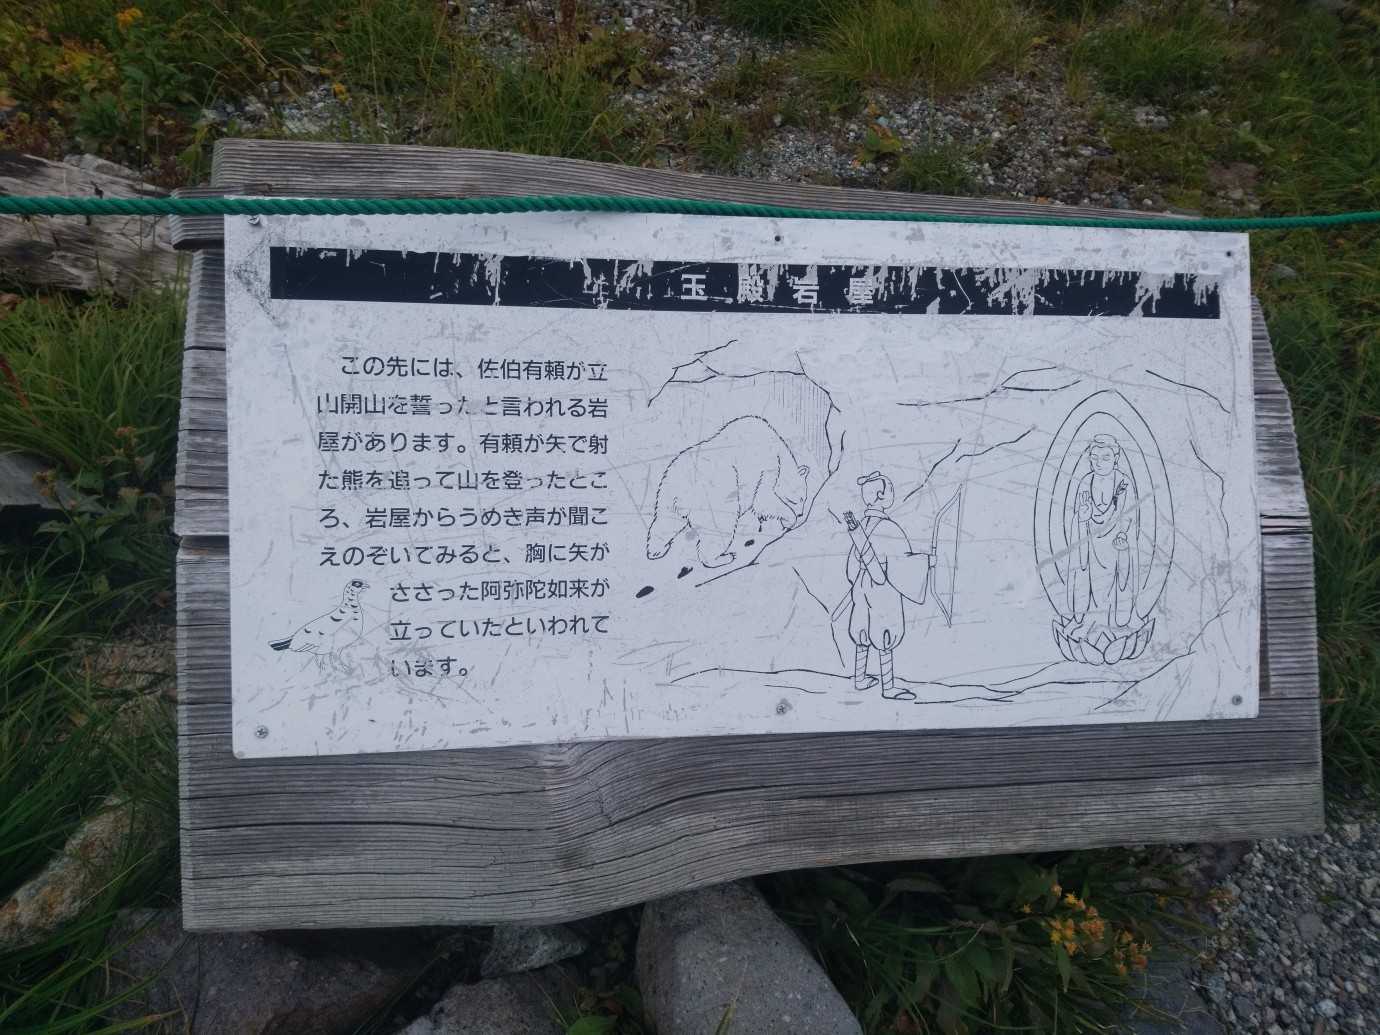 玉殿岩屋
この先には、佐伯有頼が立
山開山を誓ったと言われる岩
屋があります。有頼が矢で射
た熊を追って山を登ったとこ
ろ、岩屋からうめき声が聞こ
えのぞいてみると、胸に矢が
ささった阿弥陀如来が
立っていたといわれて
います。